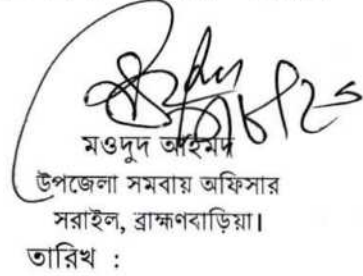 মওদুদ আহমদ
উপজেলা সমবায় অফিসার
সরাইল, ব্রাহ্মণবাড়িয়া।
তারিখ :